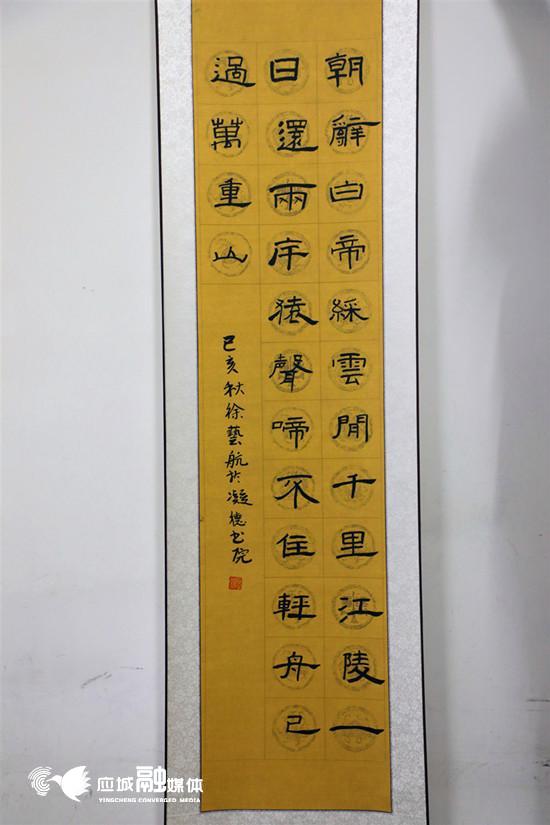 朝辭白帝綵雲間千里江陵一
日還兩岸猿聲啼不住輕舟已
過萬重山
己亥秋徐藝航於凝德书院
应城融媒体
YINGCHENG CONVERGED MEDIA